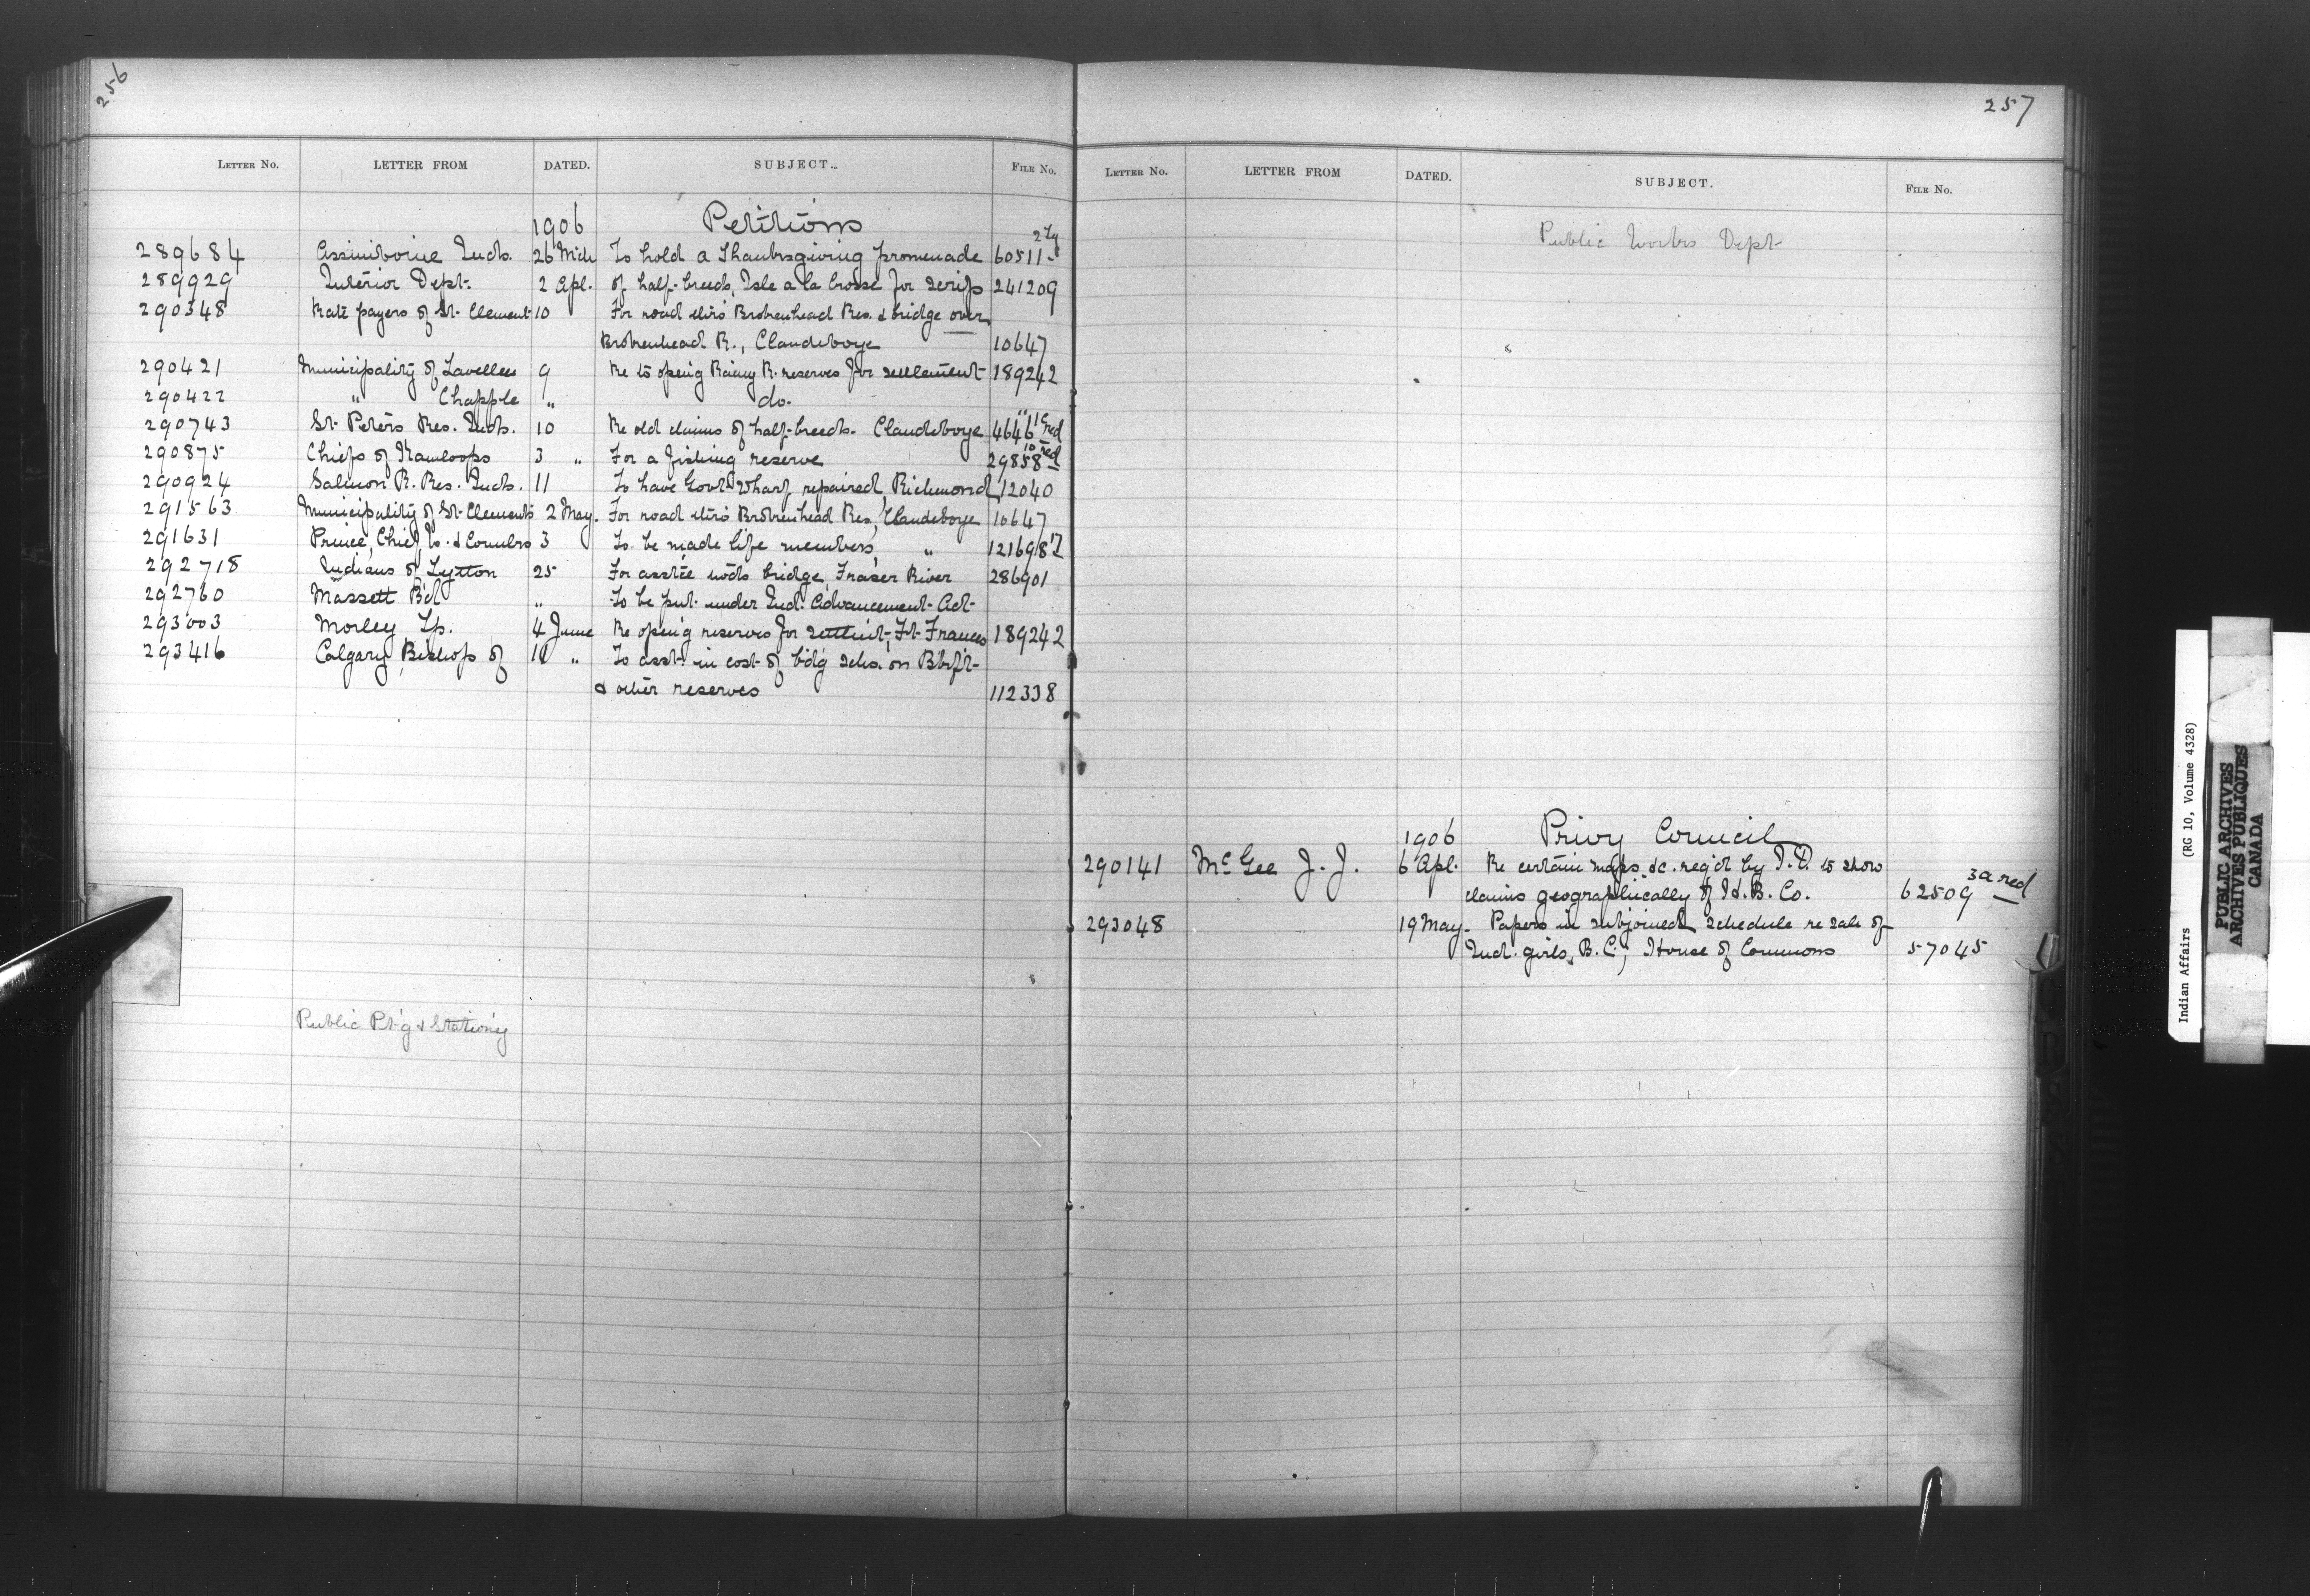 256
LETTER NO. LETTER FROM DATED. SUBJECT. FILE No.
1906 Petitions
289684 Assiniboine Inds. 26 Mch To hold a Thanksgiving promenade 60511-2
289929 Interior Dept. 2 Apl. of half-breeds, Isle a la Crosse for scrip 241209
290348 Rate payers of St. Clement 10 For road thro Brokenhead Res. & bridge over
Brokenhead R., Clandeboye 10647
290421 Municipality of Lavellee 9 Re to openg Rainy R. reserves for settlement 189242
290422 " Chapple " do. "
290743 St. Peters Res. Inds. 10 Re old claims of half-breeds. Clandeboye 46461 red
290875 Chiefs of Kamloops 3 " For a fishing reserve 29858 10 red
290924 Salmon R. Res. Inds. 11 To have Govt. Wharf repaired, Richmond 12040
291563 Municipality of St. Clements 2 May. For road thro Brokenhead Res., Clandeboye 10647
291631 Prince, Chief, & Counclrs 3 To be made life members, " 121698
292718 Indians of Lytton 25 For asstce towds bridge, Fraser River 286901
292760 Massett Bd " To be put under Ind. Advancement Act
293003 Morley Tp. 4 June Re open'g reserves for settlm't, Ft. Frances 189242
293416 Calgary, Bishop of 18 " To asst. in cost of b'd'g schs. on Bbkft
& other reserves 112338
Public Pt'g & Station'y
257
LETTER NO. LETTER FROM DATED. SUBJECT. FILE No.
Public Works Dept
1906 Privy Council
290141 McGee J. J. 6 Apl. Re certain maps &c. req'd by I.D. to show
claims geographically of H. B. Co. 62509 3a red
293048 19 May. Papers in subjoined schedule re sale of
Ind. girls, B.C., House of Commons 57045
Indian Affairs (RG 10, Volume 4328)
PUBLIC ARCHIVES
ARCHIVES PUBLIQUES
CANADA